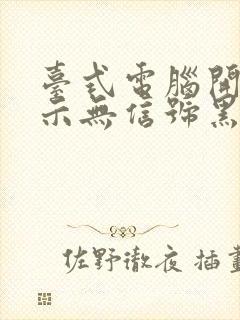 臺式電腦開
示無信號黑
佐野徹夜 插畫